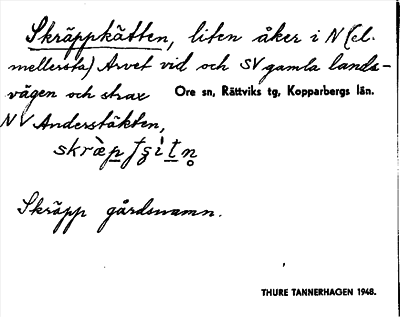 Skräppkätten, liten åker i N (el.
mellersta) Arvet vid och SV gamla lands-
vägen och strax Ore sn, Rättviks tg, Kopparbergs län.
NV Anderstäkten,
Skräpp gårdsnamn.
THURE TANNERHAGEN 1948.